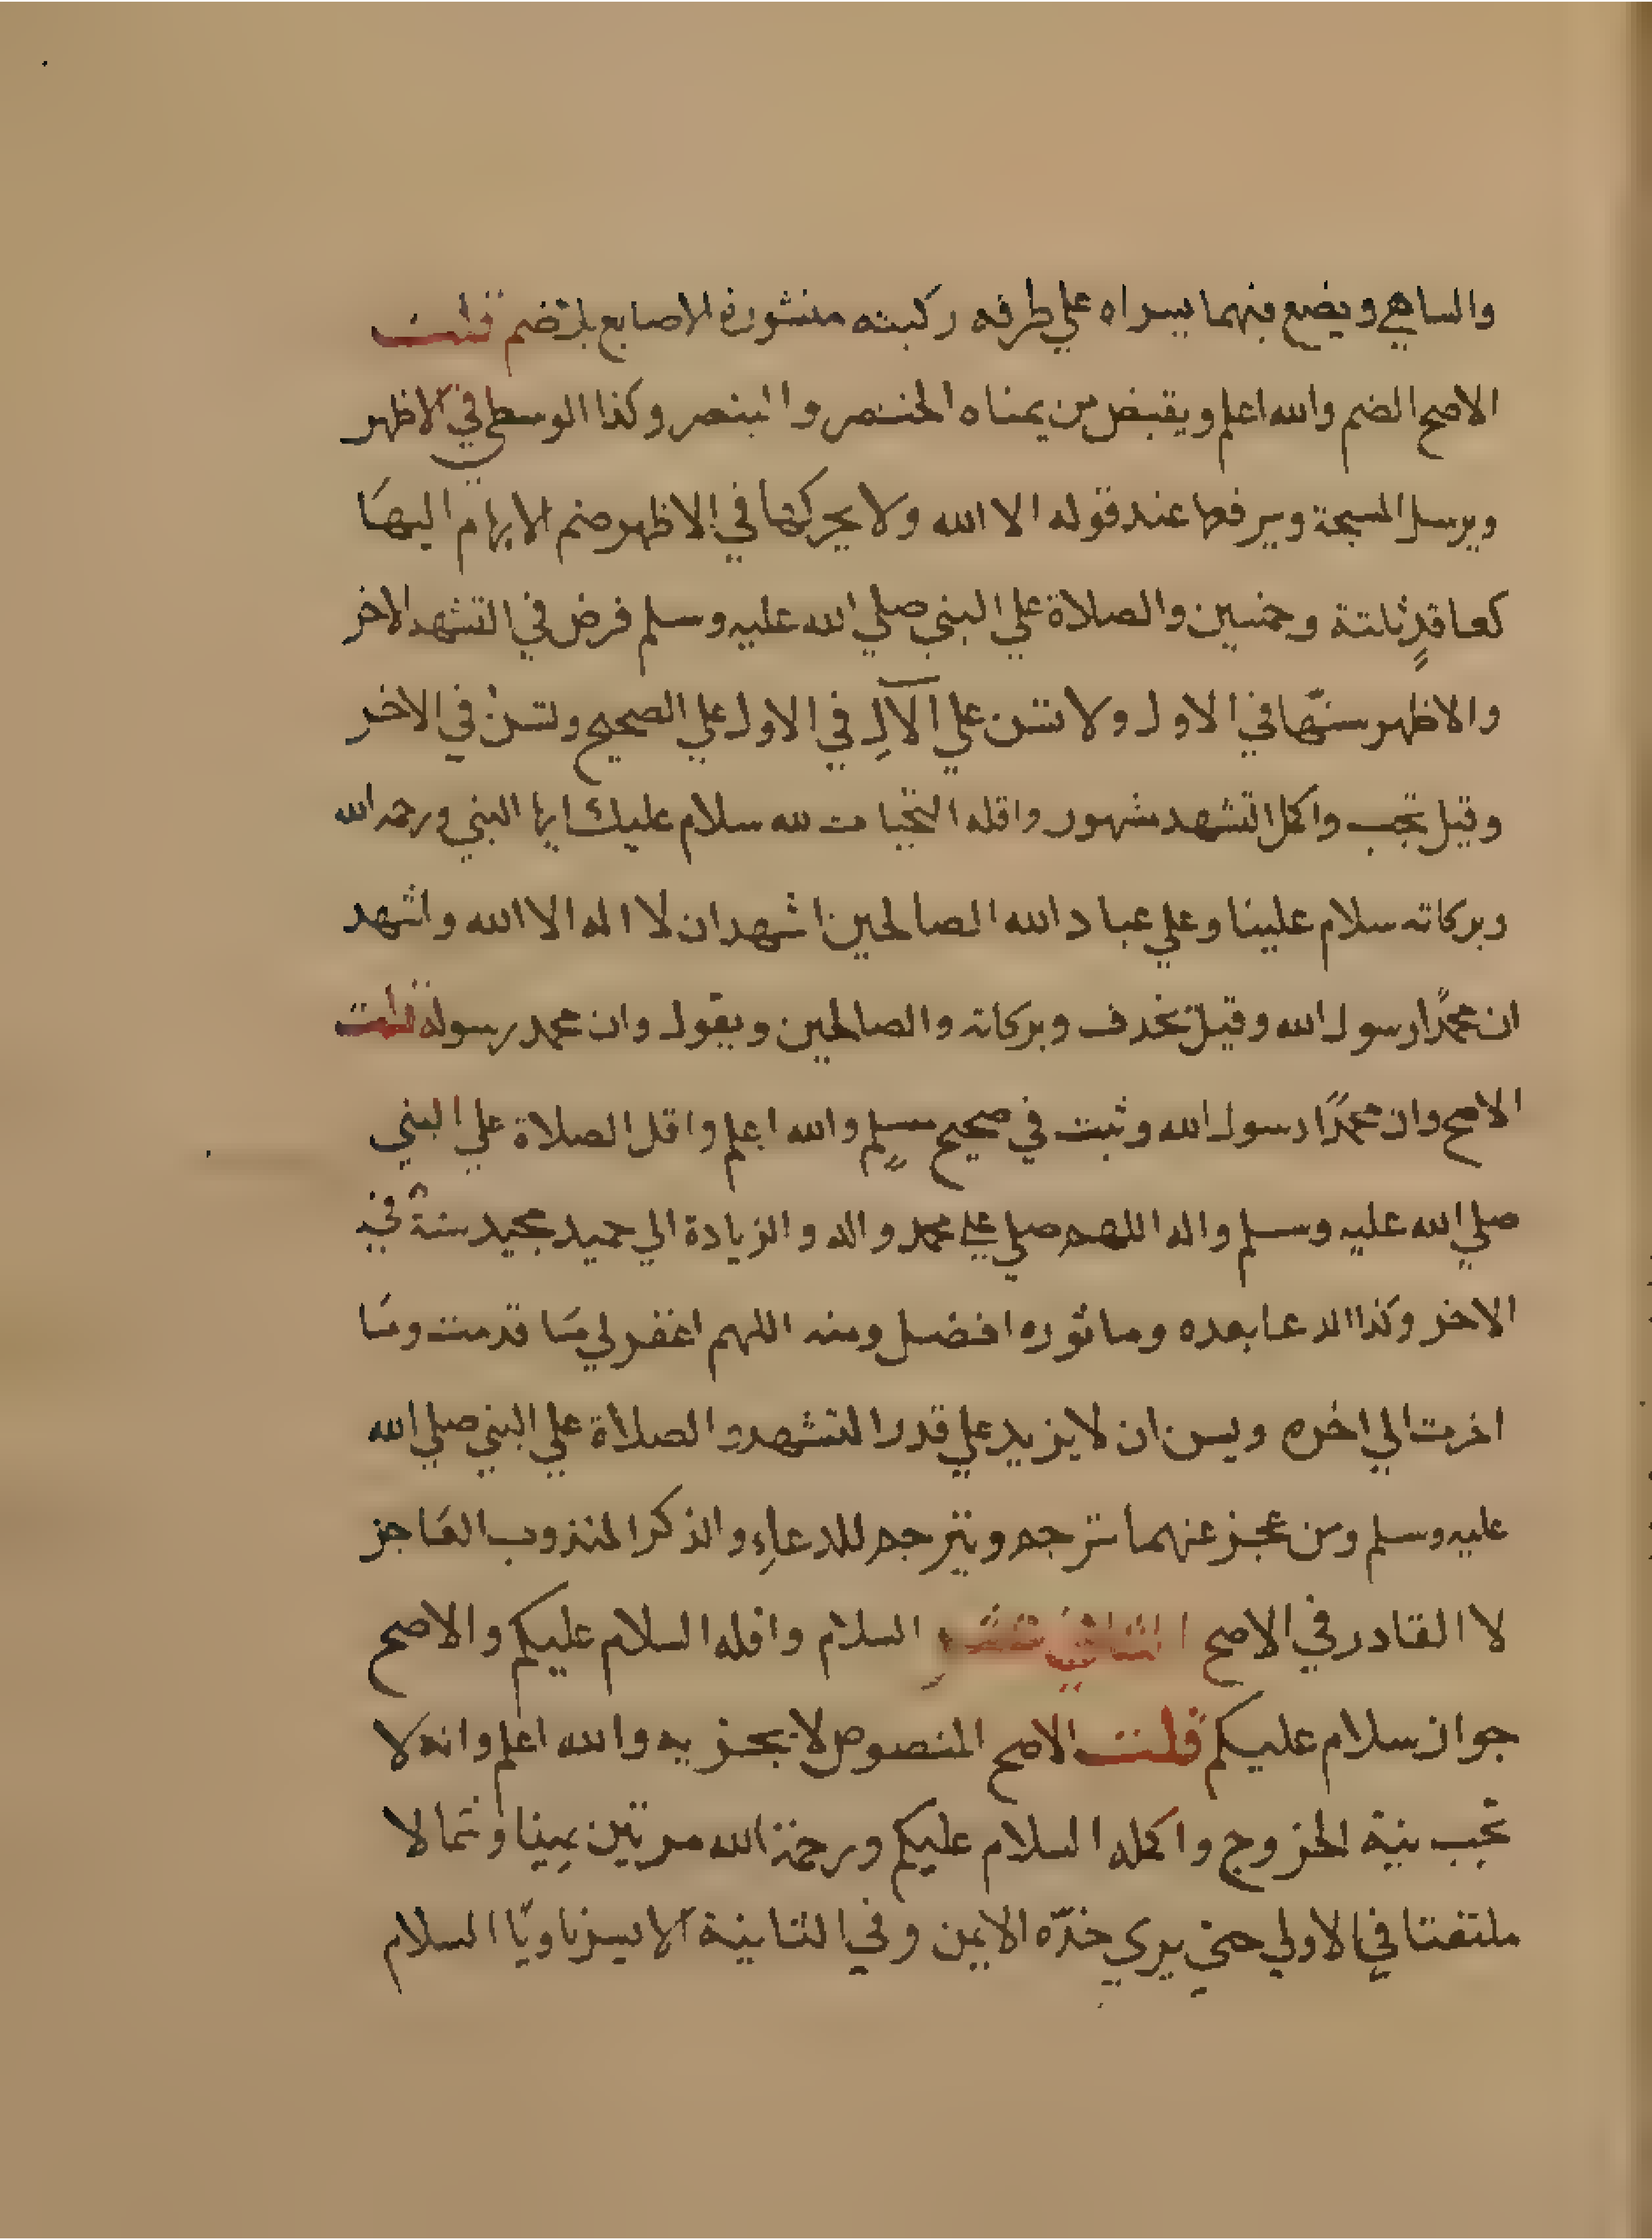 والساهي ويضع فيهما يسراه علي طرف ركبته منشورة الاصابع بلا ضم قلت
الاصح الضم والله اعلم ويقبض من يمناه الخنصر والبنصر وكذا الوسطي في الاظهر
ويرسل المسبحة ويرفعها عند قوله الا الله ولا يحركها في الاظهر ضم الابهام اليها
كعاقدٍ ثلثة وخمسين والصلاة علي النبي صلي الله عليه وسلم فرض في التشهد الاخر
والاظهر سنّها في الاول ولا تسن علي الآلِ في الاول علي الصحيح وتسنُ في الاخر
وقيل تجب واكمل التشهد مشهور واقله التحيات لله سلام عليك ايها النبي ورحمه الله
وبركاته سلام علينا وعلي عباد الله الصالحين اشهد ان لا اله الا الله واشهد
ان محمدًا رسول الله وقيل تحذف وبركاته والصالحين ويقول وان محمد رسوله قلت
الاصح وان محمدًا رسول الله وثبت في صحيح مسلمٍ والله اعلم واقل الصلاة علي النبي
صلي الله عليه وسلم واله اللهم صلي علي محمد واله والزيادة الي حميد مجيد سنة في
الاخر وكذا الدعا بعده وماثوره افضل ومنه اللهم اغفر لي مَا قدمت ومَا
اخرت الي اخره ويسن ان لا يزيد علي قدر التشهد والصلاة علي النبي صلي الله
عليه وسلم ومن عجز عنهما ترجم ويترجم للدعاءِ والذكر المندوب العَاجز
لا القادر في الاصح الثاني عشر السلام واقله السلام عليكم والاصح
جواز سلام عليكم قلت الاصح المنصوص لا يجزيه والله اعلم وانه لا
تجب نية الخروج واكمله السلام عليكم ورحمة الله مرتين يمينا وشمالا
ملتفتا في الاولي حتي يري خدّه الايمن وفي الثانية الايسر ناويًا السلام